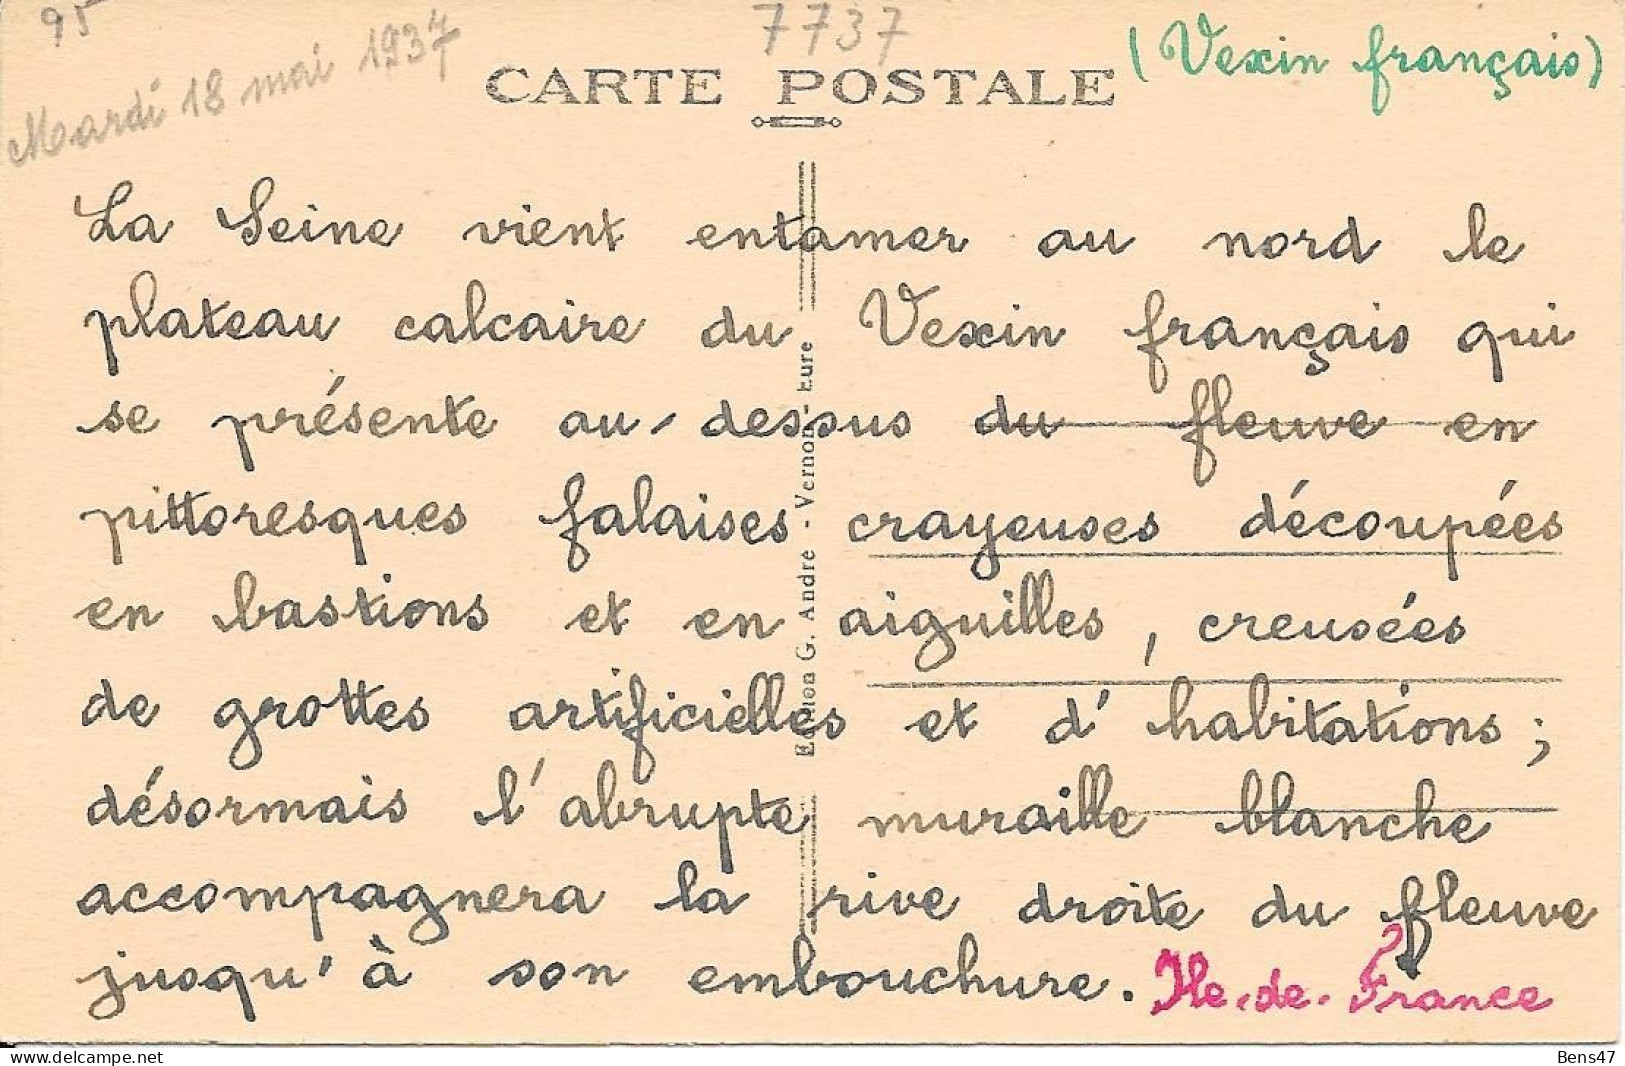 95
7737
(Vexin français)
Mardi 18 mai 1937
CARTE POSTALE
La Seine vient entamer au nord le
plateau calcaire du Vexin français qui
se présente au-dessus du fleuve en
pittoresques falaises crayeuses découpées
en bastions et en aiguilles, creusées
de grottes artificielles et d'habitations;
désormais l'abrupte muraille blanche
accompagnera la rive droite du fleuve
jusqu'à son embouchure. Ile-de-France
Edition G. André - Vernon - Eure
Bens47